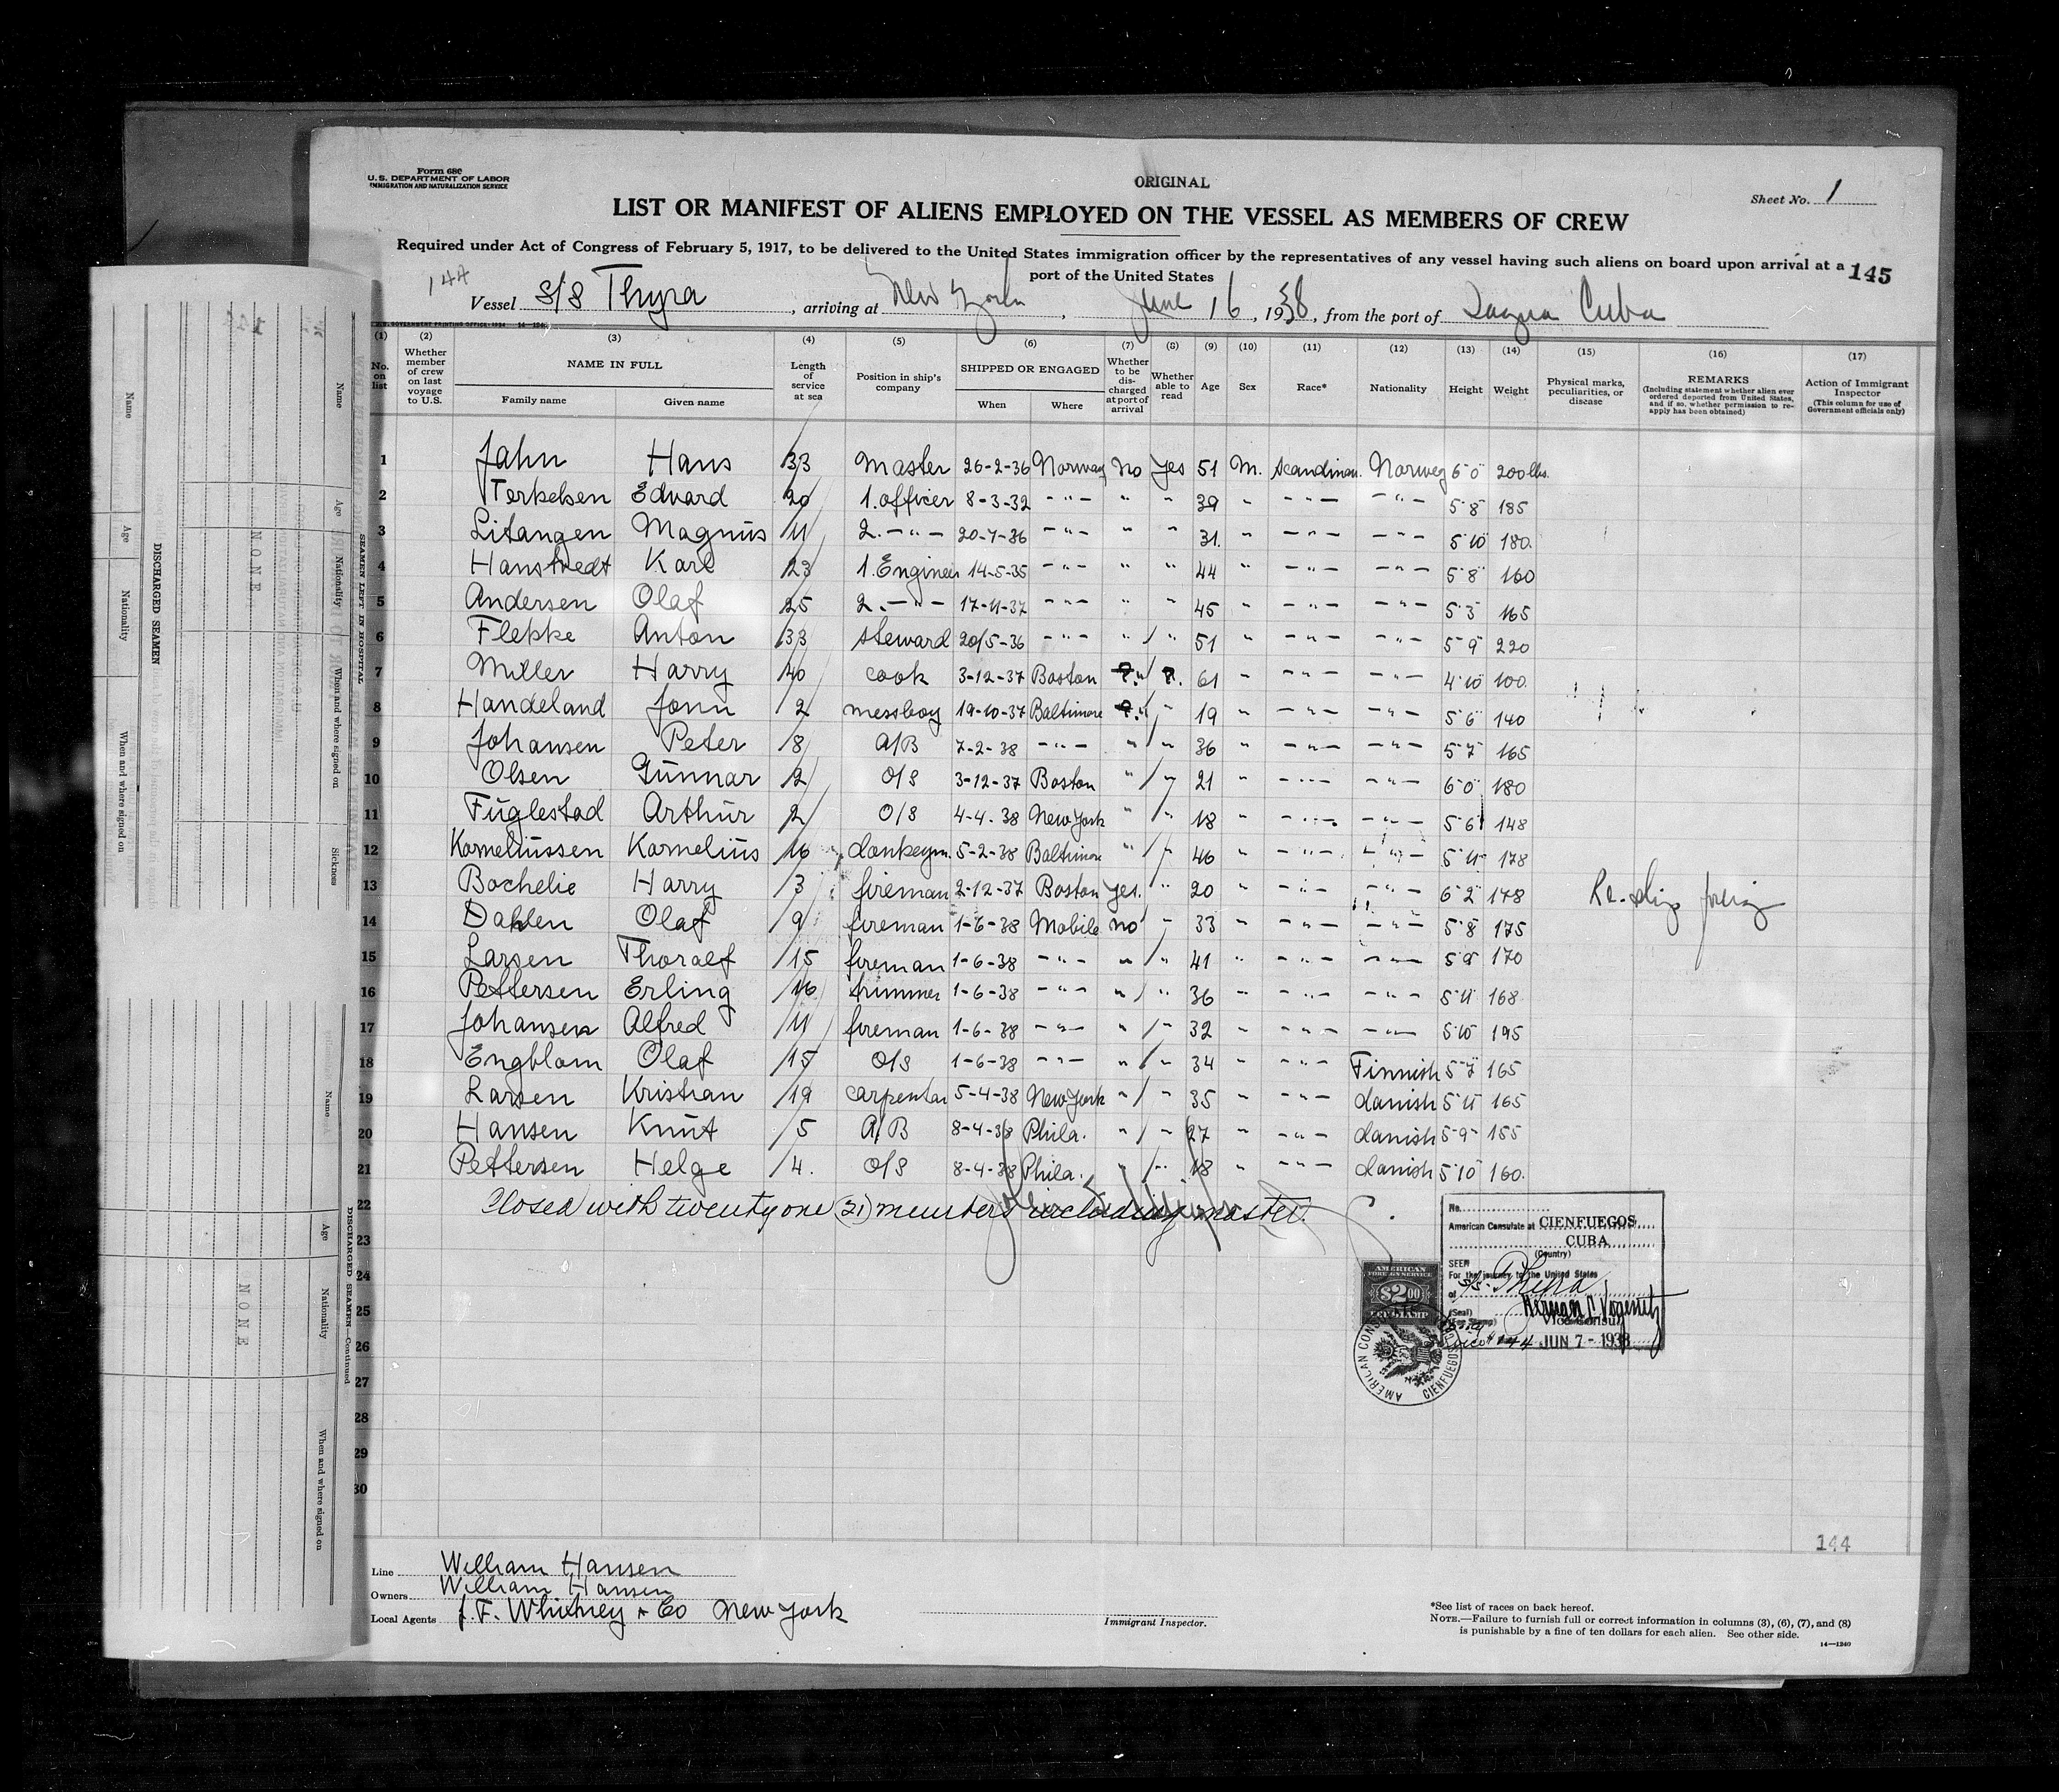 Form 680
U.S. DEPARTMENT OF LABOR
IMMIGRATION AND NATURALIZATION SERVICE
ORIGINAL
Sheet No. 1
LIST OR MANIFEST OF ALIENS EMPLOYED ON THE VESSEL AS MEMBERS OF CREW
Required under Act of Congress of February 5, 1917, to be delivered to the United States immigration officer by the representatives of any vessel having such aliens on board upon arrival at a
port of the United States
145
144
Vessel S/S Thyra, arriving at New York, June 16, 1938, from the port of Sagua Cuba
(1) No. on list
(2) Whether member of crew on last voyage to U.S.
(3) NAME IN FULL Family name Given name
(4) Length of service at sea
(5) Position in ship's company
(6) SHIPPED OR ENGAGED When Where
(7) Whether to be discharged at port of arrival
(8) Whether able to read
(9) Age
(10) Sex
(11) Race*
(12) Nationality
(13) Height
(14) Weight
(15) Physical marks, peculiarities, or disease
(16) REMARKS (Including statement whether alien ever ordered deported from United States, and if so, whether permission to reapply has been obtained)
(17) Action of Immigrant Inspector (This column for use of Government officials only)
1 Jahn Hans 33 Master 26-2-36 Norway no yes 51 M. Scandinav. Norweg 6'0" 200 lbs.
2 Terkelsen Edvard 20 1.officer 8-3-32 -"- " " 39 " -"- -"- 5'8" 185
3 Litangen Magnus 11 2. -"- 20-7-36 -"- " " 31. " -"- -"- 5'10" 180.
4 Hanstvedt Karl 23 1.Engineer 14-5-35 -"- " " 44 " -"- -"- 5'8" 160
5 Andersen Olaf 25 2. -"- 17-11-37 -"- " " 45 " -"- -"- 5'3" 165
6 Flekke Anton 33 steward 20/5-36 -"- " " 51 " -"- -"- 5'9" 220
7 Miller Harry 40 cook 3-12-37 Boston " 61 " -"- -"- 4'10" 100.
8 Handeland 2 messboy 19-10-37 Baltimore " " 19 " -"- -"- 5'6" 140
9 Johansen Peter 8 A/B 7-2-38 -"- " " 36 " -"- -"- 5'7" 165
10 Olsen Gunnar 2 O/S 3-12-37 Boston " " 21 " -"- -"- 6'0" 180
11 Fuglestad Arthur 2 O/S 4-4-38 New York " " 18 " -"- -"- 5'6" 148
12 Korneliussen Kornelius 16 donkeym. 5-2-38 Baltimore " " 46 " -"- -"- 5'11" 178
13 Bachelie Harry 3 fireman 2-12-37 Boston yes. " 20 " -"- -"- 6'2" 178
14 Dahlen Olaf 9 fireman 1-6-38 Mobile no " 33 " -"- -"- 5'8" 175
15 Larsen Thoralf 15 fireman 1-6-38 -"- " " 41 " -"- -"- 170
16 Pettersen Erling 16 trimmer 1-6-38 -"- " " 36 " -"- -"- 5'11" 168
17 Johansen Alfred 11 fireman 1-6-38 -"- " " 32 " -"- -"- 5'10" 195
18 Engblom Olaf 15 O/S 1-6-38 -"- " " 34 " -"- Finnish 5'7" 165
19 Larsen Kristian 19 carpenter 5-4-38 New York " " 35 " -"- danish 5'11" 165
20 Hansen Knut 5 A/B 8-4-38 Phila. " " 27 " -"- danish 5'9" 155
21 Pettersen Helge 4. O/S 8-4-38 Phila. " " 18 " -"- danish 5'10" 160.
22 Closed with twenty one (21) members including master.
23
24
25
26
27
28
29
30
No.
American Consulate at CIENFUEGOS
CUBA
(Country)
SEEN
For the journey to the United States
of S/S Thyra
(Seal)
Vice Consul
JUN 7 - 1938
AMERICAN FOREIGN SERVICE
$2.00
AMERICAN CONSULATE CIENFUEGOS
144
Line William Hansen
Owners William Hansen
Local Agents J.F. Whitney & Co New York
Immigrant Inspector.
*See list of races on back hereof.
NOTE.—Failure to furnish full or correct information in columns (3), (6), (7), and (8)
is punishable by a fine of ten dollars for each alien. See other side.
14—1240
SEAMEN LEFT IN HOSPITAL
Name
Age
Nationality
When and where signed on
Sickness
NONE
DISCHARGED SEAMEN
Name
Age
Nationality
When and where signed on
DISCHARGED SEAMEN—Continued
Name
Age
Nationality
When and where signed on
NONE